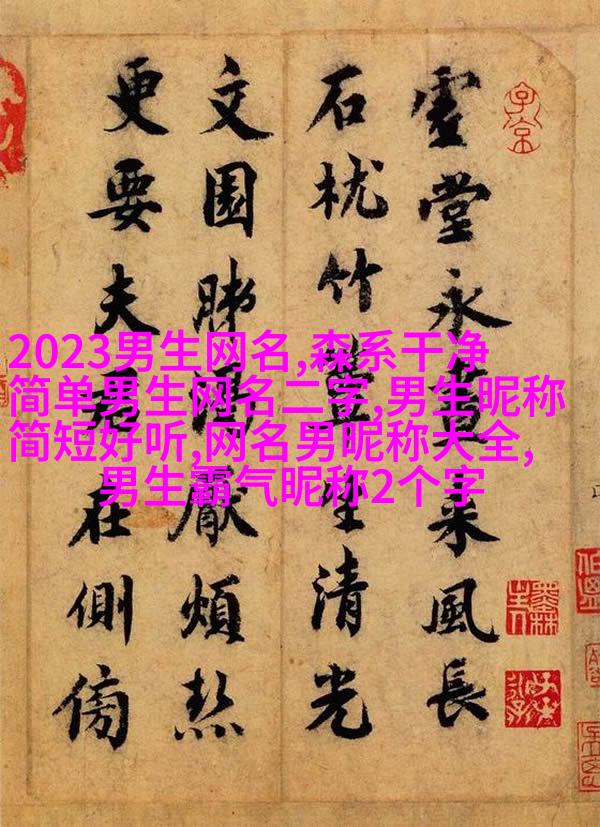 2023男生网名,森系干净
简单男生网名二字,男生昵称
简短好听,网名男昵称大全,
男生霸气昵称2个字
虛堂永晝来風長
石枕竹簟生清光
文園肺渴厭煩熱
更要夫君在側傍